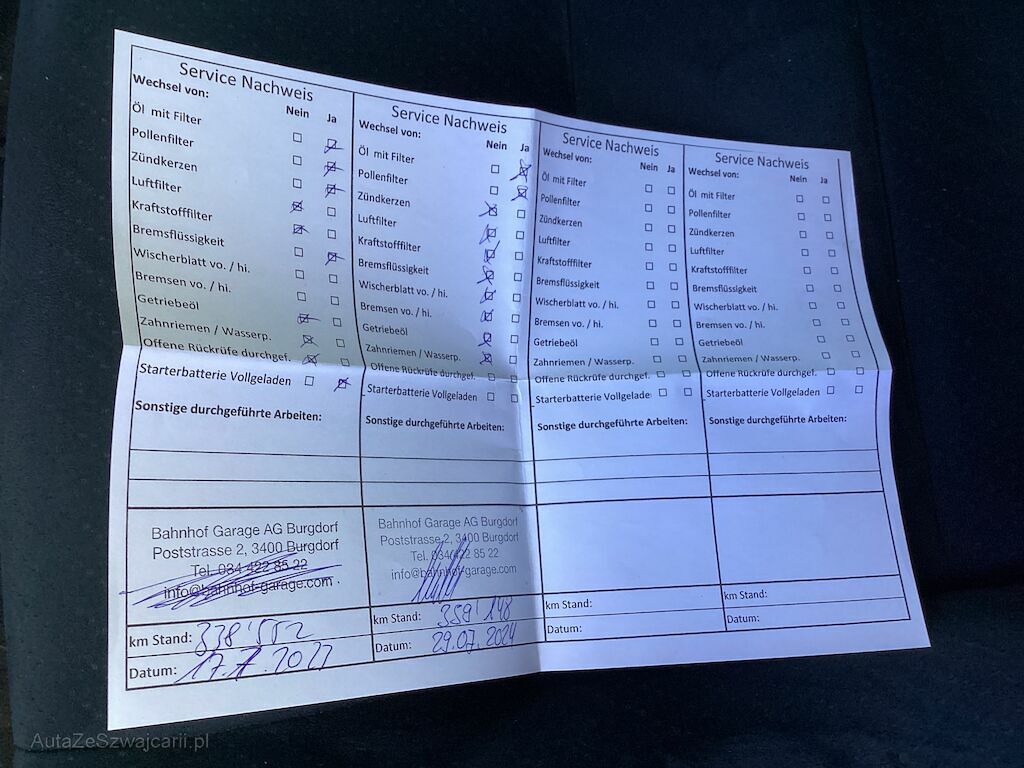 Service Nachweis
Wechsel von:
Nein Ja
Öl mit Filter
Pollenfilter
Zündkerzen
Luftfilter
Kraftstofffilter
Bremsflüssigkeit
Wischerblatt vo. / hi.
Bremsen vo. / hi.
Getriebeöl
Zahnriemen / Wasserp.
Offene Rückrüfe durchgef.
Starterbatterie Vollgeladen
Sonstige durchgeführte Arbeiten:
Bahnhof Garage AG Burgdorf
Poststrasse 2, 3400 Burgdorf
Tel. 034 422 85 22
info@bahnhof-garage.com
km Stand: 338'552
Datum: 17.7.2022
Service Nachweis
Wechsel von:
Nein Ja
Öl mit Filter
Pollenfilter
Zündkerzen
Luftfilter
Kraftstofffilter
Bremsflüssigkeit
Wischerblatt vo. / hi.
Bremsen vo. / hi.
Getriebeöl
Zahnriemen / Wasserp.
Offene Rückrüfe durchgef.
Starterbatterie Vollgeladen
Sonstige durchgeführte Arbeiten:
Bahnhof Garage AG Burgdorf
Poststrasse 2, 3400 Burgdorf
Tel. 034 422 85 22
info@bahnhof-garage.com
km Stand: 359'148
Datum: 29.07.2024
Service Nachweis
Wechsel von:
Nein Ja
Öl mit Filter
Pollenfilter
Zündkerzen
Luftfilter
Kraftstofffilter
Bremsflüssigkeit
Wischerblatt vo. / hi.
Bremsen vo. / hi.
Getriebeöl
Zahnriemen / Wasserp.
Offene Rückrüfe durchgef.
Starterbatterie Vollgelade
Sonstige durchgeführte Arbeiten:
km Stand:
Datum:
Service Nachweis
Wechsel von:
Nein Ja
Öl mit Filter
Pollenfilter
Zündkerzen
Luftfilter
Kraftstofffilter
Bremsflüssigkeit
Wischerblatt vo. / hi.
Bremsen vo. / hi.
Getriebeöl
Zahnriemen / Wasserp.
Offene Rückrüfe durchgef.
Starterbatterie Vollgeladen
Sonstige durchgeführte Arbeiten:
km Stand:
Datum:
AutaZeSzwajcarii.pl